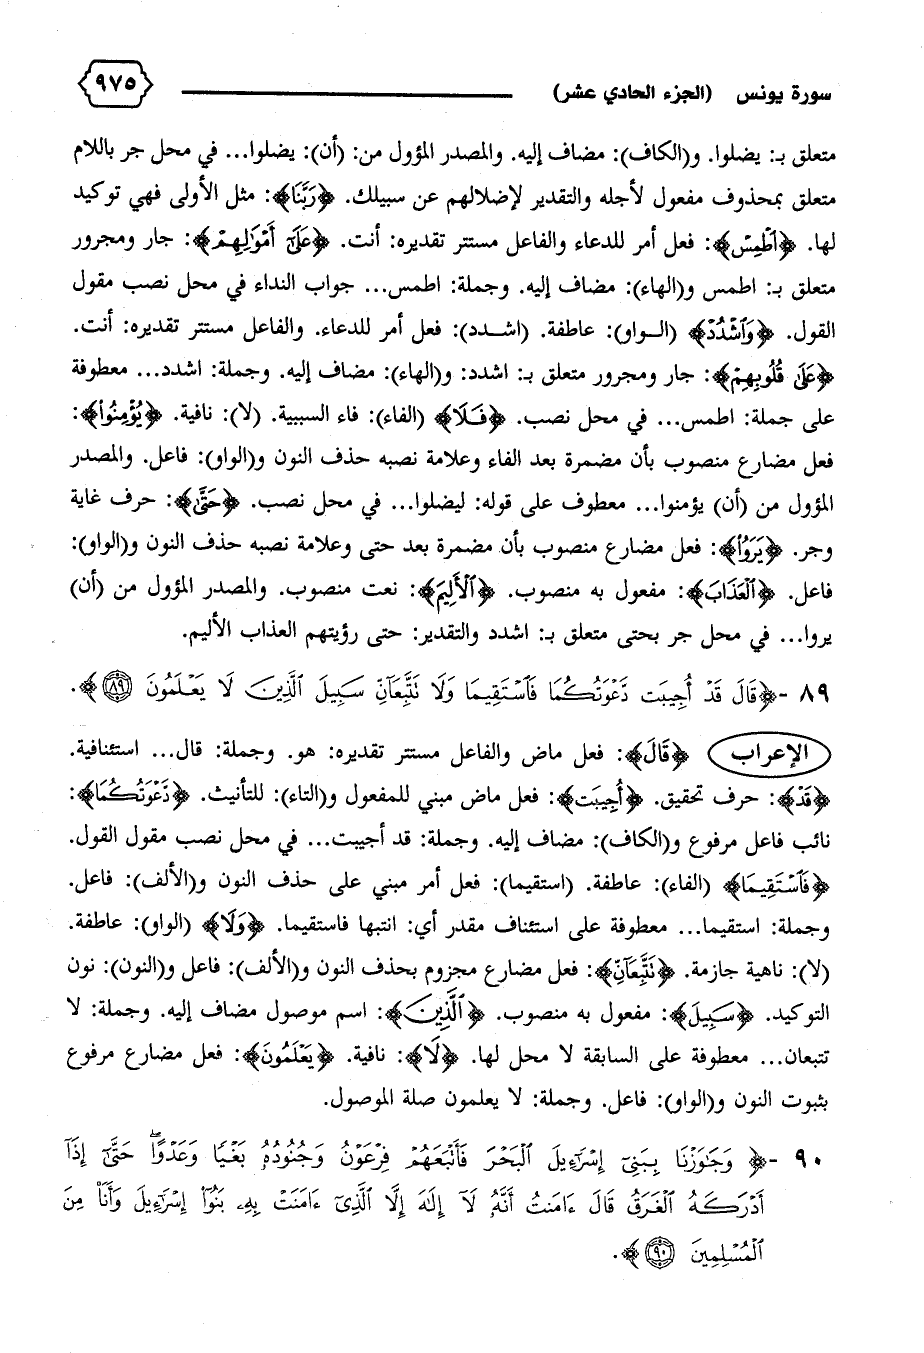 سورة يونس (الجزء الحادي عشر) ٩٧٥
متعلق بـ: يضلوا. و(الكاف): مضاف إليه. والمصدر المؤول من: (أن): يضلوا... في محل جر باللام
متعلق بمحذوف مفعول لأجله والتقدير لإضلالهم عن سبيلك. ﴿رَبَّنَا﴾: مثل الأولى فهي توكيد
لها. ﴿ٱطْمِسْ﴾: فعل أمر للدعاء والفاعل مستتر تقديره: أنت. ﴿عَلَىٰٓ أَمْوَٰلِهِمْ﴾: جار ومجرور
متعلق بـ: اطمس و(الهاء): مضاف إليه. وجملة: اطمس... جواب النداء في محل نصب مقول
القول. ﴿وَٱشْدُدْ﴾ (الـواو): عاطفة. (اشـدد): فعل أمر للدعاء. والفاعل مستتر تقديره: أنت.
﴿عَلَىٰ قُلُوبِهِمْ﴾: جار ومجرور متعلق بـ: اشدد: و(الهاء): مضاف إليه. وجملة: اشدد... معطوفة
على جملة: اطمس... في محل نصب. ﴿فَلَا﴾ (الفاء): فاء السببية. (لا): نافية. ﴿يُؤْمِنُوا۟﴾:
فعل مضارع منصوب بأن مضمرة بعد الفاء وعلامة نصبه حذف النون و(الواو): فاعل. والمصدر
المؤول من (أن) يؤمنوا... معطوف على قوله: ليضلوا... في محل نصب. ﴿حَتَّىٰ﴾: حرف غاية
وجر. ﴿يَرَوُا۟﴾: فعل مضارع منصوب بأن مضمرة بعد حتى وعلامة نصبه حذف النون و(الواو):
فاعل. ﴿ٱلْعَذَابَ﴾: مفعول به منصوب. ﴿ٱلْأَلِيمَ﴾: نعت منصوب. والمصدر المؤول من (أن)
يروا... في محل جر بحتى متعلق بـ: اشدد والتقدير: حتى رؤيتهم العذاب الأليم.
٨٩ -﴿قَالَ قَدْ أُجِيبَت دَّعْوَتُكُمَا فَٱسْتَقِيمَا وَلَا نَتَّبِعَآنِّ سَبِيلَ ٱلَّذِينَ لَا يَعْلَمُونَ ٨٩﴾.
الإعراب ﴿قَالَ﴾: فعل ماض والفاعل مستتر تقديره: هو. وجملة: قال... استئنافية.
﴿قَدْ﴾: حرف تحقيق. ﴿أُجِيبَت﴾: فعل ماض مبني للمفعول و(التاء): للتأنيث. ﴿دَّعْوَتُكُمَا﴾:
نائب فاعل مرفوع و(الكاف): مضاف إليه. وجملة: قد أجيبت... في محل نصب مقول القول.
﴿فَٱسْتَقِيمَا﴾ (الفاء): عاطفة. (استقيما): فعل أمر مبني على حذف النون و(الألف): فاعل.
وجملة: استقيما... معطوفة على استئناف مقدر أي: انتبها فاستقيما. ﴿وَلَا﴾ (الواو): عاطفة.
(لا): ناهية جازمة. ﴿نَتَّبِعَآنِّ﴾: فعل مضارع مجزوم بحذف النون و(الألف): فاعل و(النون): نون
التوكيد. ﴿سَبِيلَ﴾: مفعول به منصوب. ﴿ٱلَّذِينَ﴾: اسم موصول مضاف إليه. وجملة: لا
تتبعان... معطوفة على السابقة لا محل لها. ﴿لَا﴾: نافية. ﴿يَعْلَمُونَ﴾: فعل مضارع مرفوع
بثبوت النون و(الواو): فاعل. وجملة: لا يعلمون صلة الموصول.
٩٠ -﴿ وَجَٰوَزْنَا بِبَنِىٓ إِسْرَٰٓءِيلَ ٱلْبَحْرَ فَأَتْبَعَهُمْ فِرْعَوْنُ وَجُنُودُهُۥ بَغْيًا وَعَدْوًا ۖ حَتَّىٰٓ إِذَآ
أَدْرَكَهُ ٱلْغَرَقُ قَالَ ءَامَنتُ أَنَّهُۥ لَآ إِلَٰهَ إِلَّا ٱلَّذِىٓ ءَامَنَتْ بِهِۦ بَنُوٓا۟ إِسْرَٰٓءِيلَ وَأَنَا۠ مِنَ
ٱلْمُسْلِمِينَ ٩٠﴾.